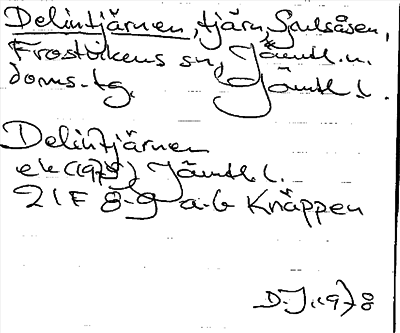 Delintjärnen, tjärn, Gaulsåsen,
Frostvikens sn, Jämtl. n.
doms. tg. Jämtl. l.
Delintjärnen
ek (1975) Jämtl. l.
21F 8-9 a-b Knäppen
D. J. 1978